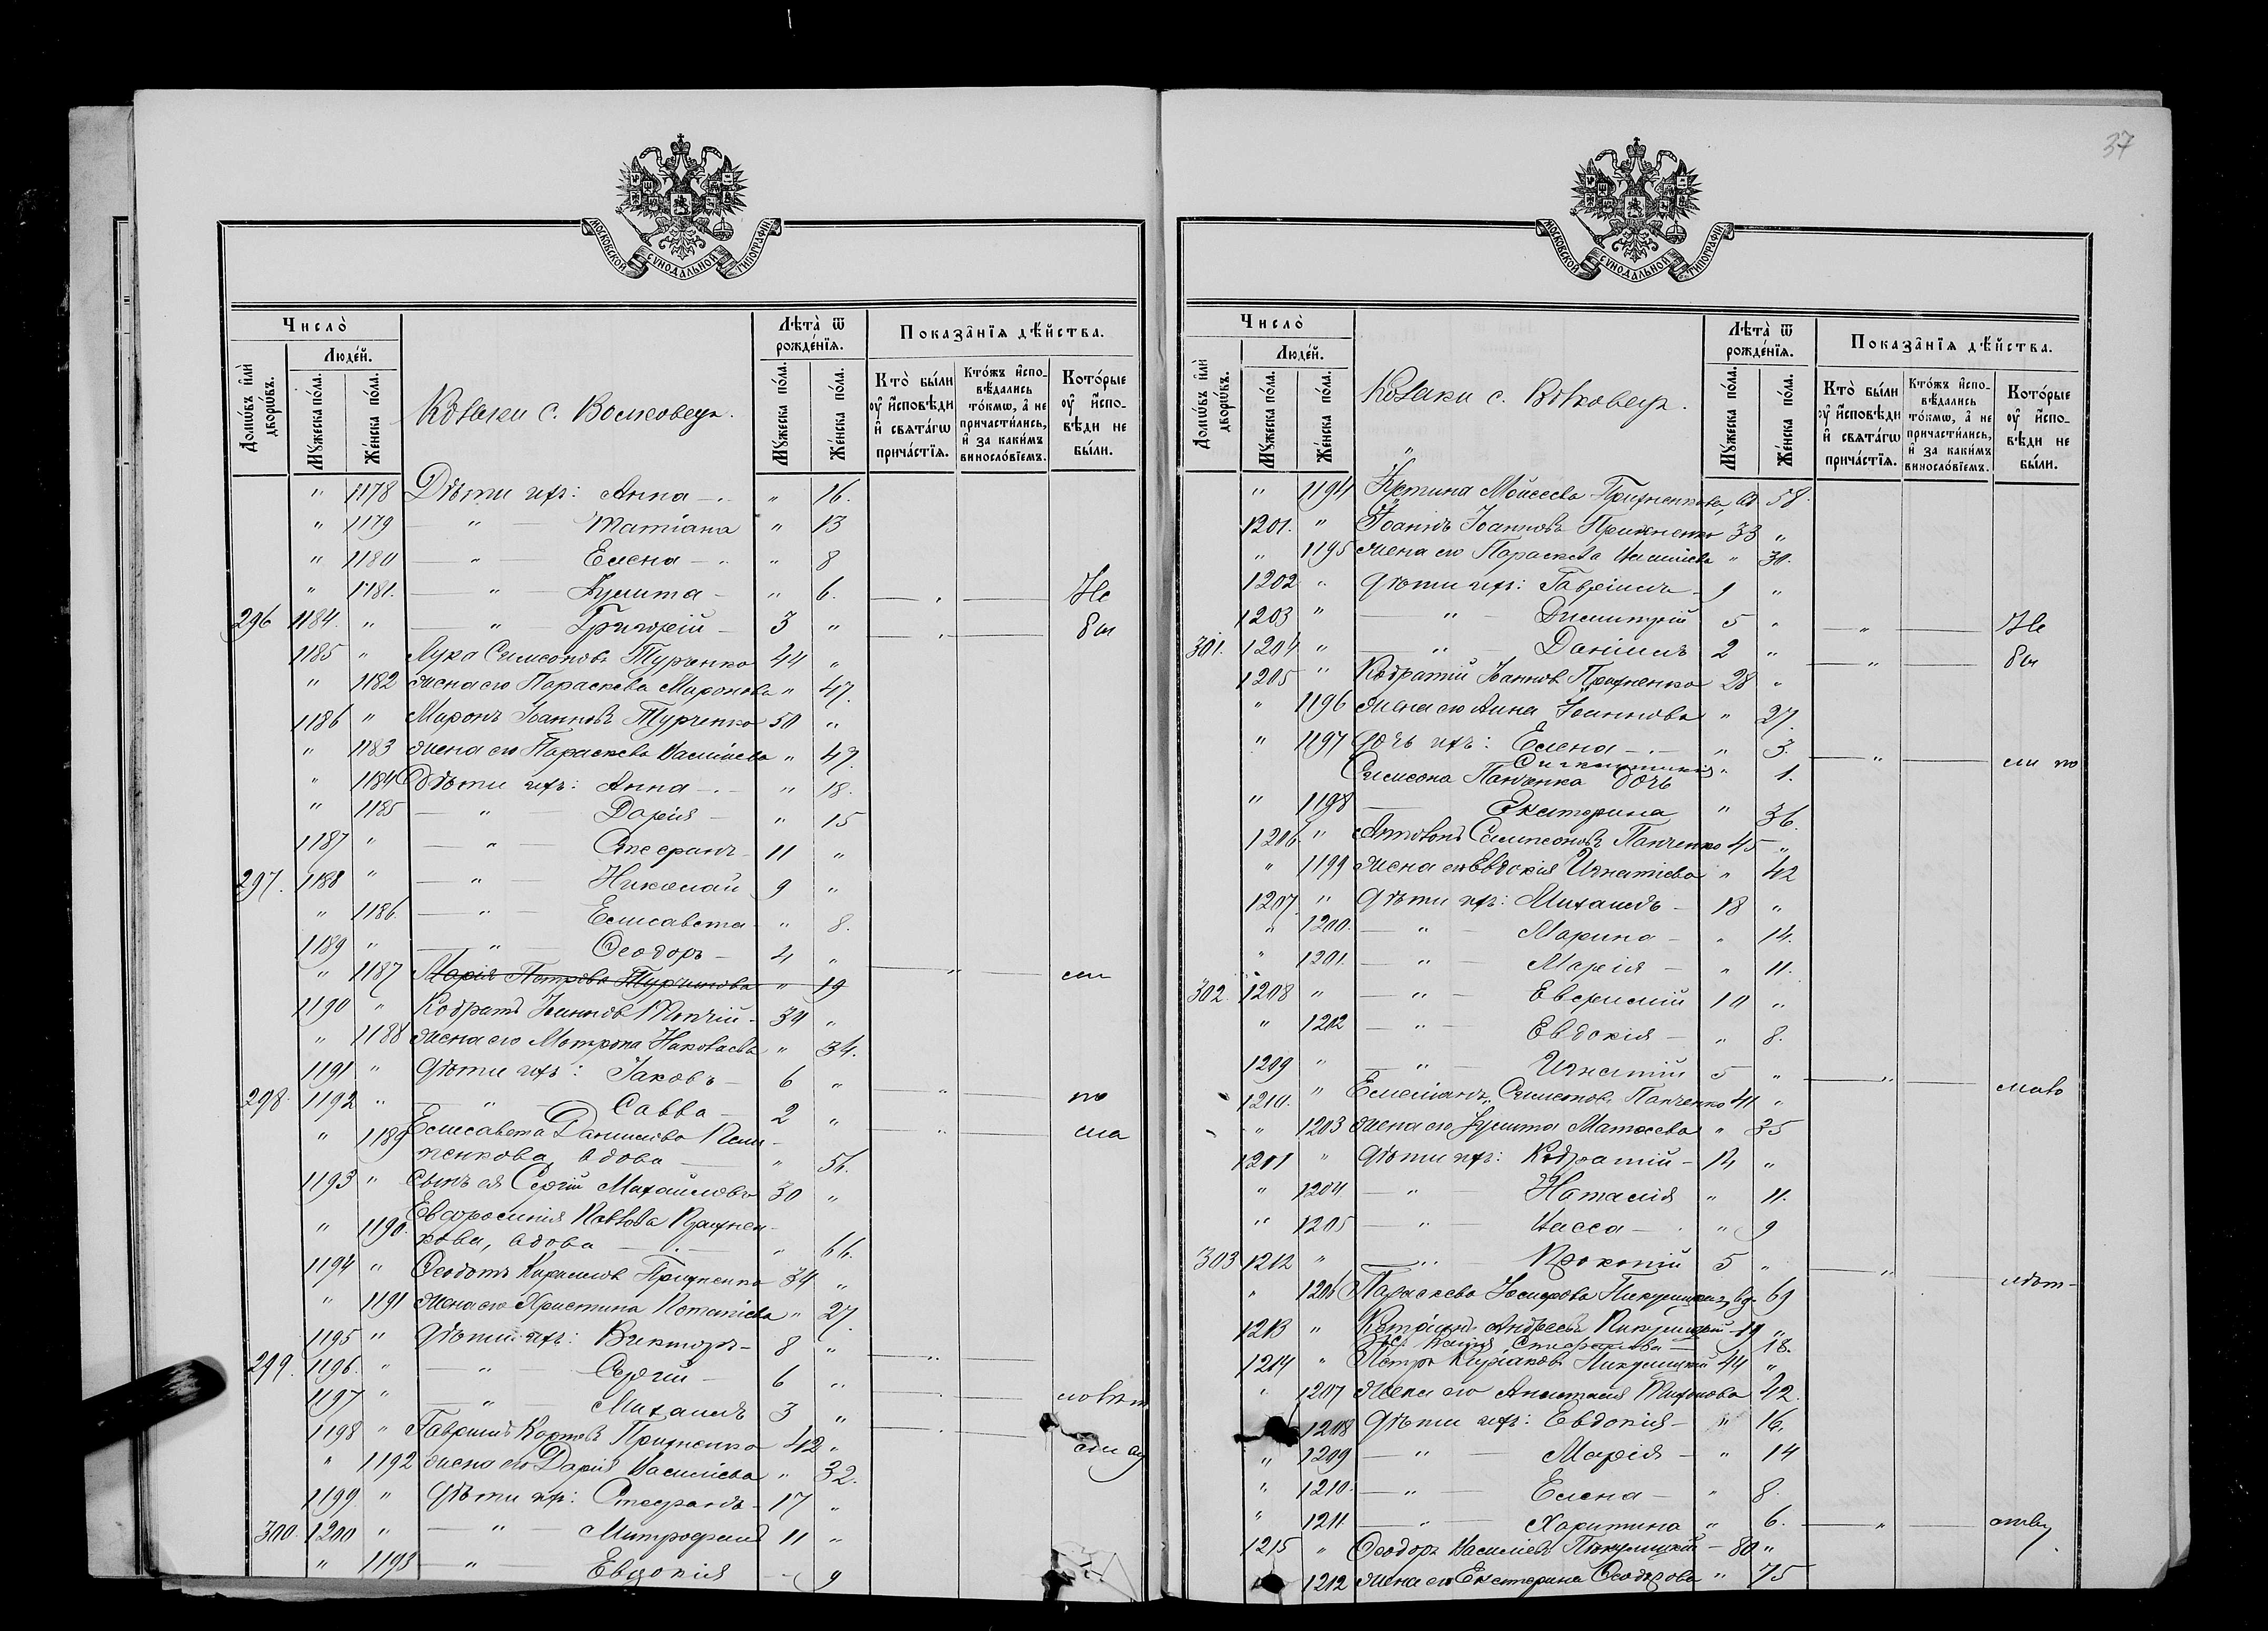 МОСКОВСКОЙ СѴНОДАЛЬНОЙ ТИПОГРАФІИ
Число̀
Домѡ́въ и҆лѝ дворѡ́въ.
Люде́й.
Мꙋжеска по́ла.
Же́нска по́ла.
Козаки с. Волковецъ.
Лѣта̀ ѿ рожде́нїѧ.
Мꙋжеска по́ла.
Же́нска по́ла.
Показа̂нїѧ дѣ́йства.
Кто̀ бы́ли ᲂу҆ и҆сповѣди и҆ свѧта́гѡ прича́стїѧ.
Кто́жъ и҆спо-вѣдались то́кмѡ, а҆ не причасти́лись, и҆ за каки́мъ виносло́вїемъ.
Кото́рые ᲂу҆ и҆спо-вѣди не бы́ли.
" 1178 Дѣти ихъ: Анна - " 16.
" 1179 — " — Татіана " 13
" 1180 — " — Елена - " 8
" 1181. — " — Іулита - " 6. Не
296 1184. " — " — Григорій - 3 " бы
1185 " Лука Симеоновъ Турченко 44 "
" 1182 жена его Параскева Миронова " 47.
1186 " Миронъ Іоанновъ Турченко 50 "
" 1183 жена его Параскева Василіева " 47.
" 1184 Дѣти ихъ: Анна - " 18.
" 1185 — " — Дарія - " 15
1187 " — " — Стефанъ - 11 "
297. 1188 " — " — Николай 9 "
" 1186. — " — Елисавета - " 8.
1189 " — " — Ѳеодоръ - 4 " ли
" 1187 Марія Петрова " 19
1190 " Кодратъ Іоанновъ 34 "
" 1188 жена его Матрона " 34.
1191 " Дѣти ихъ: Іаковъ - 6 "
298. 1192 " — " — Савва - 2 " по
" 1189 Елисавета Даниилова сла
вдова — " 56.
1193 " Сынъ ея Сергій Михайловъ 30 "
" 1190. Евфросинія
кова, вдова — " 66.
1194 " Ѳеодотъ Прихненко 34 "
" 1191 жена его Христина " 27.
1195 " Дѣти ихъ: Викторъ - 8 "
299. 1196. " — " — Сергій - 6 "
1197 " — " — Михаилъ 3 "
1198 " Гавріилъ Прихненко 42 "
" 1192 жена его Дарія Василіева " 32.
1199 " Дѣти ихъ: Стефанъ - 17 "
300. 1200 " — " — Митрофанъ 11 "
" 1193 — " — Евдокія - 9
37
МОСКОВСКОЙ СѴНОДАЛЬНОЙ ТИПОГРАФІИ
Число̀
Домѡ́въ и҆лѝ дворѡ́въ.
Люде́й.
Мꙋжеска по́ла.
Же́нска по́ла.
Козаки с. Волковецъ.
Лѣта̀ ѿ рожде́нїѧ.
Мꙋжеска по́ла.
Же́нска по́ла.
Показа̂нїѧ дѣ́йства.
Кто̀ бы́ли ᲂу҆ и҆сповѣди и҆ свѧта́гѡ прича́стїѧ.
Кто́жъ и҆спо-вѣдались то́кмѡ, а҆ не причасти́лись, и҆ за каки́мъ виносло́вїемъ.
Кото́рые ᲂу҆ и҆спо-вѣди не бы́ли.
" 1194 Моисеева Прихненкова, вд. 58.
1201. " Іоаннъ Іоанновъ Прихненко 33 "
" 1195 жена его Параскева Василіева " 30.
1202 " Дѣти ихъ: Гавріилъ - 9 "
1203 " — " — Димитрій 5 " Не
301. 1204 " — " — Даніилъ 2 " бы
1205 " Кодратій Іоанновъ Прихненко 28 "
" 1196 жена его Анна Іоаннова " 27.
" 1197 Дочь ихъ: Елена - " 3. ли по
Симеона Панченка дочь " 1.
" 1198 — Екатерина " 36.
1206 " Симеоновъ Панченко 45 "
" 1199 жена его Евдокія Игнатіева " 42
1207. " Дѣти ихъ: Михаилъ - 18 "
" 1200. — " — Марина - " 14.
" 1201 — " — Марія - " 11.
302. 1208 " — " — Евфимій 10 "
" 1202 — " — Евдокія - " 8.
1209 " — " — Игнатій 5 "
1210. " Емеліанъ Симеоновъ Панченко 41 "
" 1203 жена его Іулита Матѳеева " 35
1211 " Дѣти ихъ: Кодратій - 14 "
" 1204. — " — Наталія " 11.
" 1205 — " — Васса - " 9
303 1212 " — " — Прокопій 5 "
" 1206 Параскева Іосифова вд. 69
1213 " Андреевъ 19 "
18.
1214 " Петръ Киріаковъ Пикулицкій 44 "
" 1207 жена его Анастасія 42.
1208 Дѣти ихъ: Евдокія - " 16.
" 1209 — " — Марія - " 14
" 1210. — " — Елена - " 8.
" 1211 — " — Харитина " 6.
1215 " Ѳеодоръ Василіевъ Пикулицкій - 80 "
1212 жена его Екатерина Ѳеодорова " 75